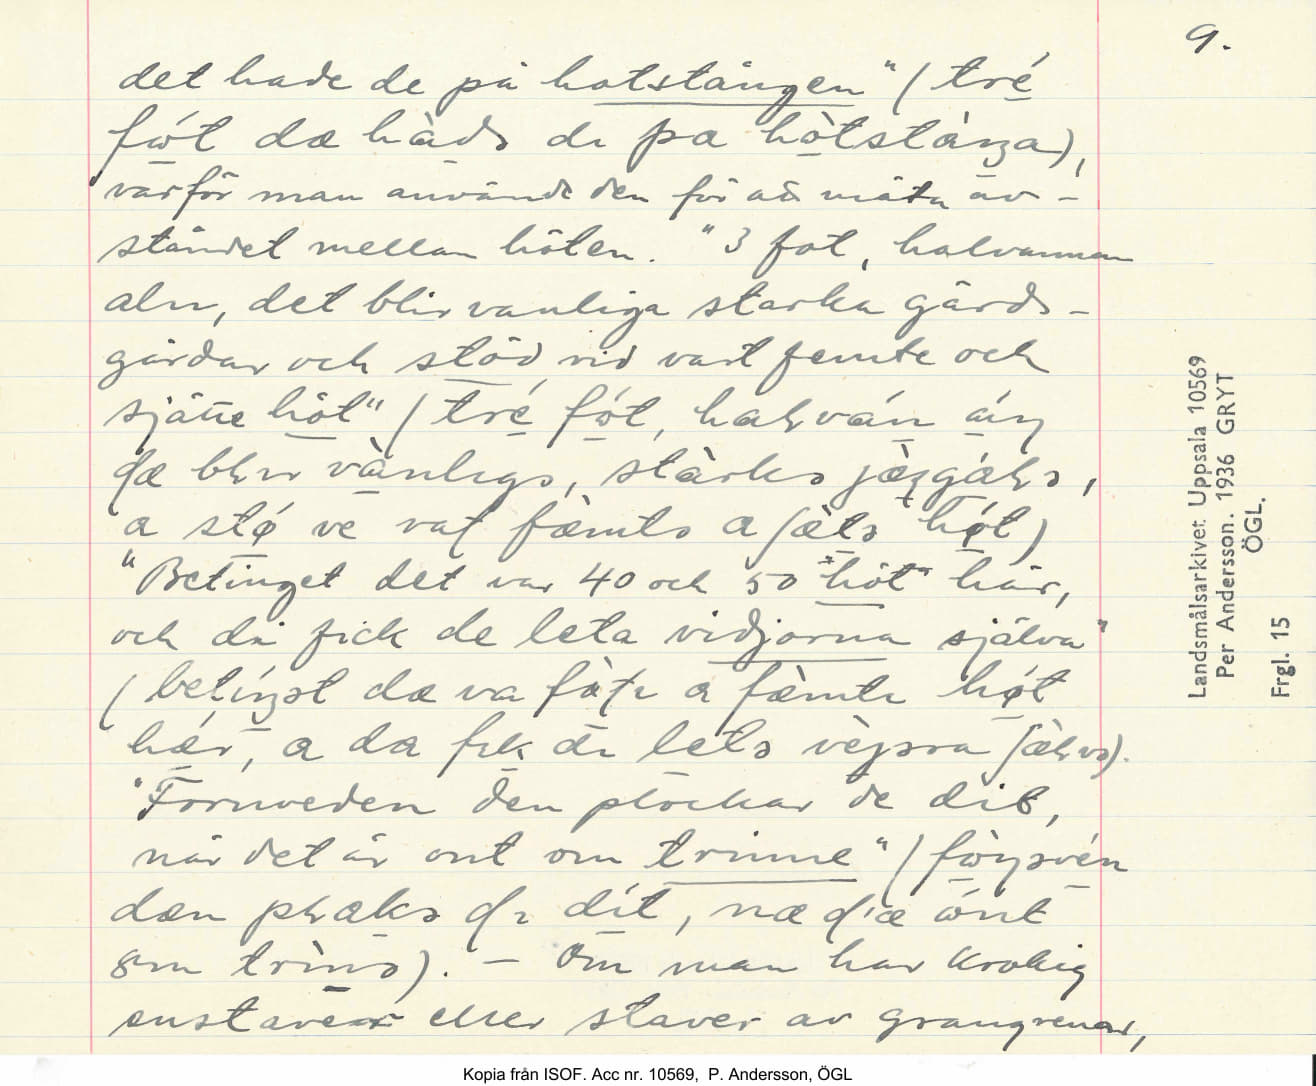 9.
det hade de på hotstången" (tré
fót dæ hàdə di pa hòtstàŋa),
varför man använde den för att mäta av-
ståndet mellan höten. "3 fot, halvannan
aln, det blir vanliga starka gärds-
gårdar och stöd vid vart femte och
sjätte höt" (tré fót, halván
dæ blir vànligə, stàrkə
a stø ve vaʈ fæmtə a høt)
"Betinget det var 40 och 50 "höt" här,
och då fick de leta vidjorna själva"
(betíŋət dæ va a høt
hær, a da fik di letə
"Fornveden den plockar de dit,
när det är ont om trinne" (
dæn dít, ónt
om trìnə). – Om man har krokig
enstaver eller staver av grangrenar,
Landsmålsarkivet Uppsala 10569
Per Andersson. 1936 GRYT
ÖGL.
Frgl. 15
Kopia från ISOF. Acc nr. 10569, P. Andersson, ÖGL